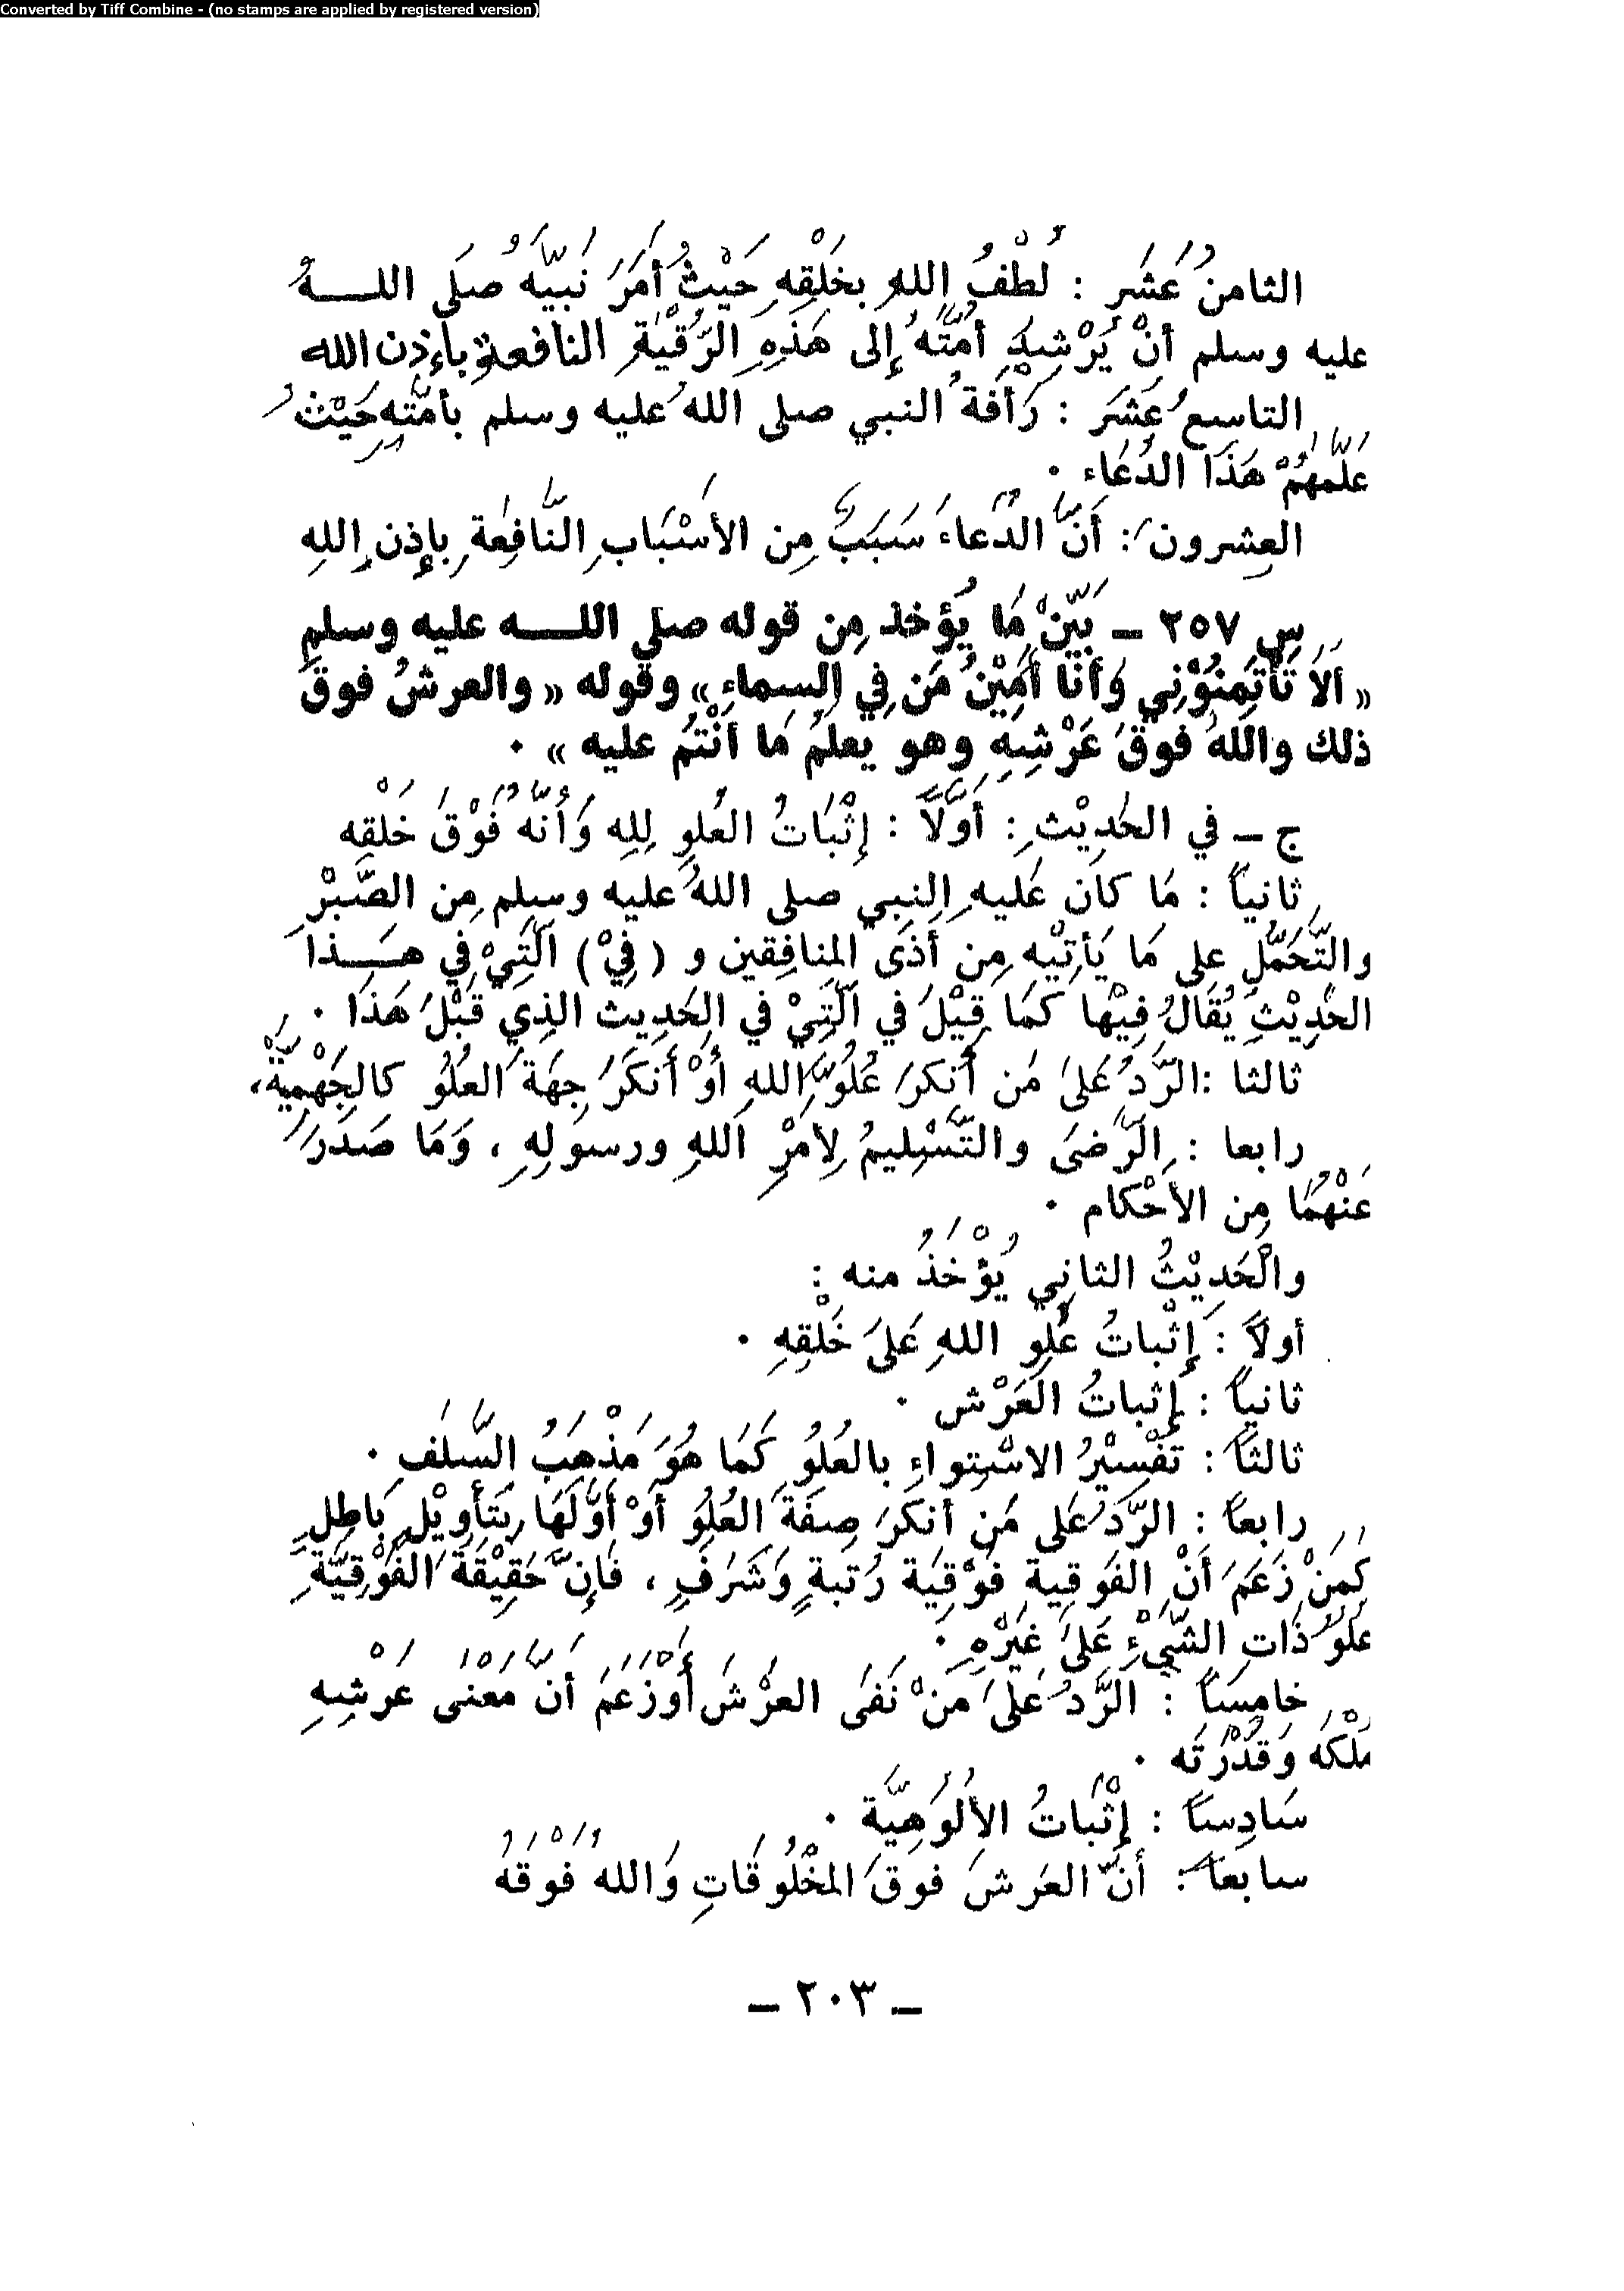 Converted by Tiff Combine - (no stamps are applied by registered version)
الثامنُ عَشَر : لُطْفُ اللهِ بِخَلْقِهِ حَيْثُ أَمَرَ نَبِيَّهُ صَلَى اللـــهُ
عليه وسلم أنْ يُرْشِدَ أُمَّتَهُ إِلى هَذِهِ الرُّقْيَةِ النافعةِ بِإِذن الله
التاسِعُ عَشَرَ : رَأْفَةُ النبي صلى اللهُ عليه وسلم بأمَّتِهِ حَيْثُ
عَلَّمَهُمْ هَذَا الدُعَاء .
العِشرون : أَنَّ الدُّعاءَ سَبَبٌ مِن الأَسْبَابِ النَّافِعَةِ بِإِذنِ اللهِ
س ٢٥٧ – بَيِّنْ مَا يُؤخذ مِن قوله صلى اللـــه عليه وسلم
« أَلاَ تَأْتَمِنُوْنِي وَأَنَا أَمِيْنُ مَن فِي السماءِ » وقوله « والعرشُ فوقَ
ذلك واللهُ فوقَ عَرْشِهِ وهو يعلمُ مَا أَنْتُمْ عليه » .
ج – في الحَدِيْثِ : أَوَّلاً : إِثْبَاتُ العُلوِ لِلهِ وَأَنَّهُ فَوْقَ خَلْقِه
ثانياً : مَا كانَ عَليهِ النبي صلى اللهُ عليه وسلم مِن الصَّبْرِ
والتَّحَمُّلِ على مَا يَأتِيْه مِن أَذَى المنافِقين و ( فِيْ ) الَّتِيْ فِي هـــذا
الحَدِيْثِ يُقَالُ فِيْهَا كَمَا قِيْلَ في الَّتِيْ في الحَدِيث الذِي قَبْلَ هَذَا .
ثالثا : الرَّدُ عَلىَ مَن أَنكرَ عُلُوَّ اللهِ أَوْ أَنكَرَ جِهَةَ العُلُوِ كالجَهْمِيَّةِ،
رابعا : الرِّضىَ والتَّسْلِيمُ لِأَمْرِ اللهِ ورسولِهِ ، وَمَا صَدَرَ
عَنْهُمَا مِن الأَحْكام .
والْحَدِيْثُ الثانِي يُؤْخَذُ منه :
أولاً : إِثْباتُ عُلُوِ اللهِ عَلىَ خَلْقِهِ .
ثانياً : إِثباتُ العَرْش .
ثالثاً : تَفْسِيْرُ الاسْتِواءِ بالعُلُوِ كَمَا هُوَ مَذْهَبُ السَّلَفِ .
رابعاً : الرَّدُ عَلى مَن أَنكَرَ صِفَةَ العُلُوِ أَوْ أَوَّلَهَا بِتَأوِيْلٍ بَاطِلٍ
كَمَنْ زَعَمَ أَنْ الفَوقِيةِ فَوْقِيَة رُتبةٍ وَشَرَفٍ ، فَإِنَّ حَقِيْقَةَ الفَوْقِيَّةِ
عُلوُ ذَاتِ الشَّيْءِ عَلىَ غَيْرِهِ .
خامِساً : الرَّدُ عَلىَ مَنْ نَفَى العَرْشَ أَوْ زَعَمَ أَنَّ مَعْنَى عَرْشِهِ
مُلْكَه وَقُدْرَتَه .
سَادِساً : إِثْبَاتُ الأُلوَهِيَّة .
سابعاً : أَنَّ العَرشَ فوقَ المَخْلُوقَاتِ وَاللهُ فَوْقَهُ
– ٢٠٣ –